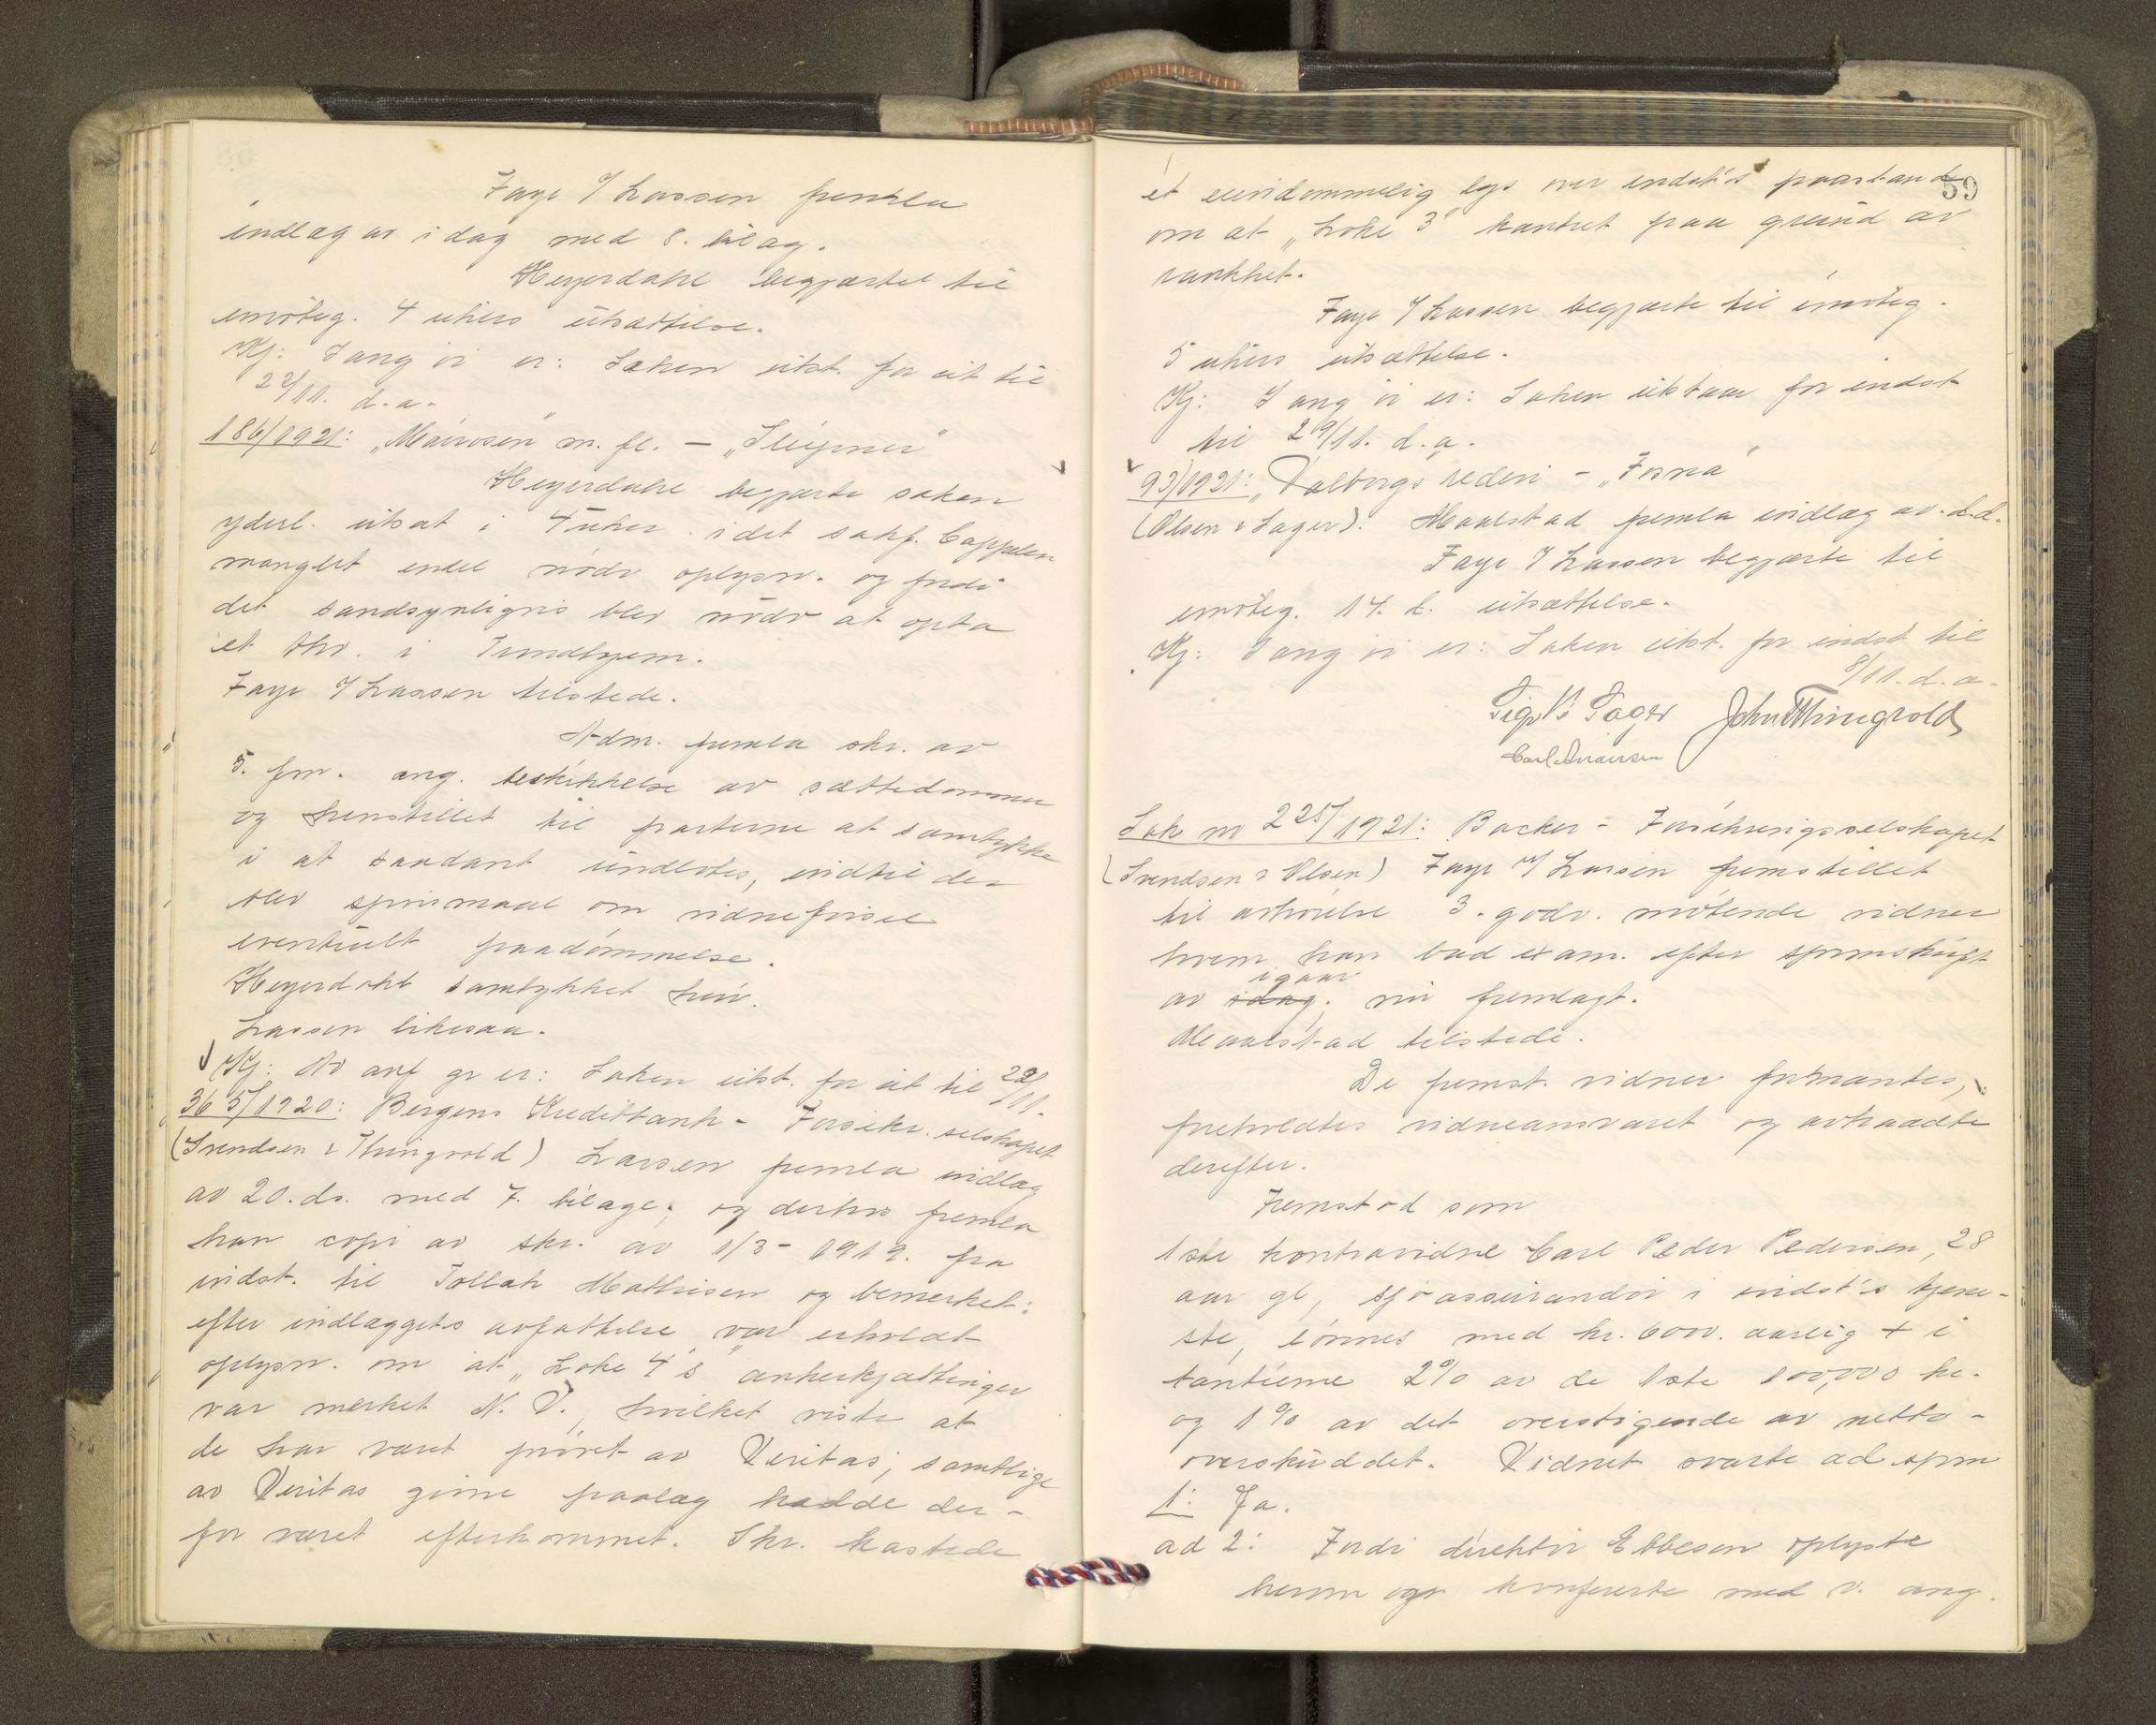 Faye f/ Lassen fremla
indlæg av i dag med 8. bilag.
Heyerdahl begjærte til
imøteg. 4 ukers utsættelse.
Kj: I ang øi er: Saken utst. for cit til
22/11. d.a.
186/1921: „Maurosen" m. fl. – „Sleipner"
Heyerdahl begjærte saken
yderl. utsat i 4 uker idet sakf. Cappelen
manglet endel nødv oplysn. og fordi
det sandsynligvis blev nødv at opta
et thv. i Trondhjem.
Faye f/ Lassen tilstede.
Adm. fremla skr. av
5. fm. ang. beskikkelse av sættedommer
og henstillet til parterne at samtykke
i at saadant undlotes, indtil der
blev spørsmaal om vidneførsel
eventuelt paadømmelse.
Heyerdahl samtykket heri.
Lassen likesaa.
Kj: Av anf gr er: Saken utst. for cit til 22/11.
365/1920: Bergens Kreditbank – Forsikr. selskapet
(Svendsen & Thingvold) Larsen fremla indlæg
av 20. ds. med 7. bilage; og derhos fremla
han copi av skr. av 1/3 – 1919. fra
indst. til Tollak Mathisen og bemerket:
efter indlæggets avfattelse var erholdt
oplysn. om at „Loke 4's" ankerkjættinger
var merket N. V., hvilket viste at
de har været prøvet av Veritas; samtlige
av Veritas givne paalæg hadde der-
for været efterkommet. Skr. kastede
59
et eiendommelig lys over indst's paastand
om at „Loke 3" kantret paa grund av
rankhet.
Faye f/ Lassen begjærte til imøteg.
5 ukers utsættelse.
Kj: I ang øi er: Saken utstaar for indst
til 29/11. d.a.
93/1921: „Valborgs rederi – „Forna"
(Olsen & Sager). Maalstad fremla indlæg av d.d.
Faye f/ Lassen begjærte til
imøteg. 14. d. utsættelse.
Kj: I ang øi er: Saken utst. for indst til
8/11. d.a.
Sigv Sager John Thingvold
Carl Andersen
Sak nr 225/1921: Backer – Forsikringsselskapet
(Svendsen & Olsen) Faye f/ Larsen fremstillet
til avhørelse 3. godv. møtende vidner
hvem han bad exam. efter spørsskrift
igaar
av idag, nu fremlagt.
Maalstad tilstede.
De fremst. vidner formantes,
foreholdtes vidneansvaret og avtraadte
derefter.
Fremstod som
1ste kontravidne Carl Peder Pedersen, 28
aar gl, sjøassurandør i indst's tjene-
ste, lønnes med kr. 6000. aarlig + i
tantieme 2% av de 1ste 100,000 kr.
og 1% av det overstigende av netto-
overskuddet. Vidnet svarte ad spm
1: Ja.
ad 2: Fordi direktør Ebbesen oplyste
herom og konfererte med v. ang.